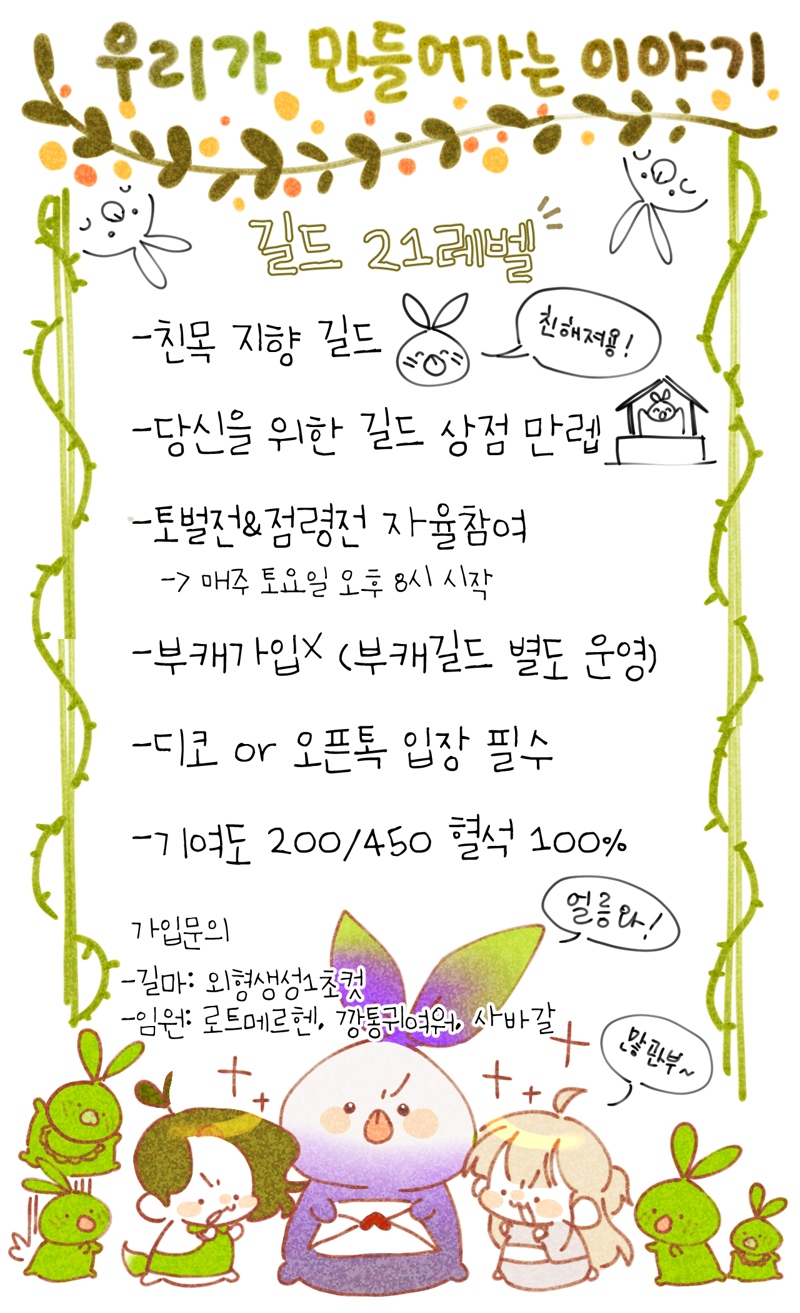 우리가 만들어가는 이야기
길드 21레벨
-친목 지향 길드
친해져용!
-당신을 위한 길드 상점 만렙
-토벌전&점령전 자율참여
-> 매주 토요일 오후 8시 시작
-부캐가입X (부캐길드 별도 운영)
-디코 or 오픈톡 입장 필수
-기여도 200/450 혈석 100%
얼릉와!
가입문의
-길마: 외형생성1초컷
-임원: 로트메르헨, 깡통귀여워, 사바갈
많관부~